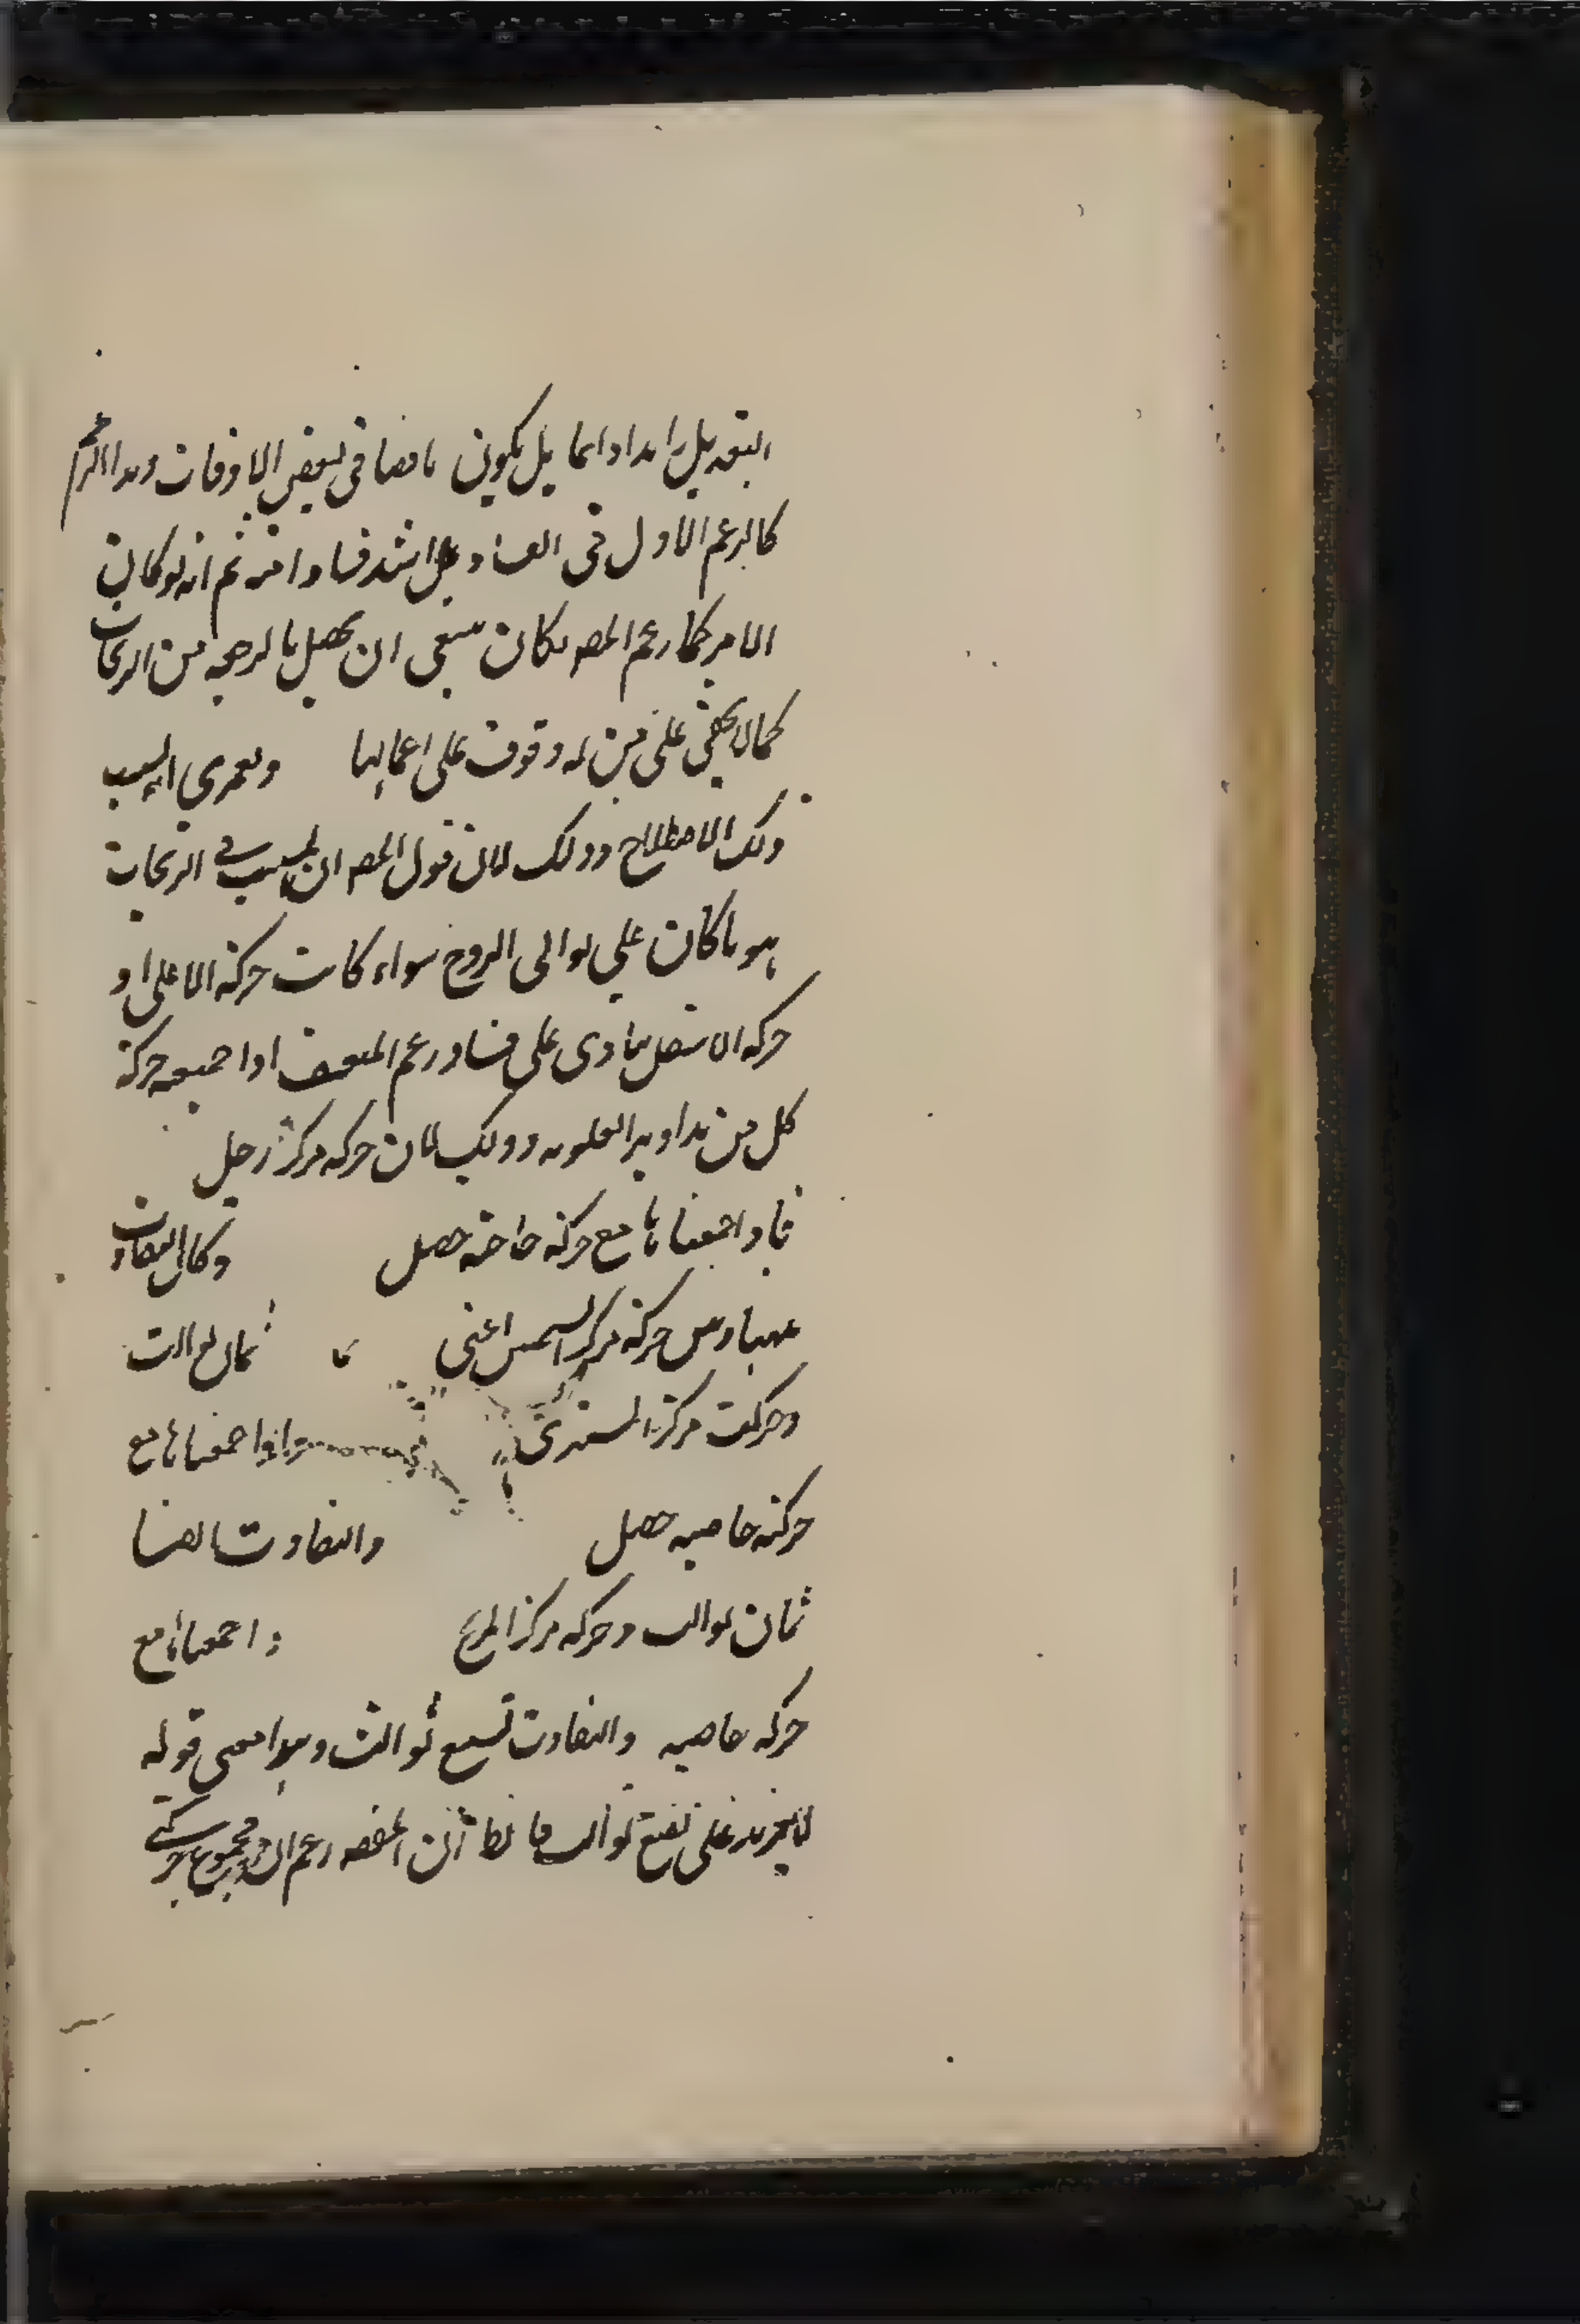 التعديل زايدا دايما بل يكون ناقصا فى بعض الاوقات وهذا الزعم
كالزعم الاول فى الفساد بل اشد فسادا منه ثم انه لو كان
الامر كما زعم المصـ لكان ينبغى ان يحصل بالرصد من الزيجات
كما لا يخفى على من له وقوف على اعمالها ولعمرى ان لسبب
ذلك الاصطلاح وذلك لان قول المصـ ان المسبب فى الزيجات
هو ما كان على توالى البروج سواء كانت حركة الاعلى او
حركة الاسفل ينادى على فساد زعم المصنف اذا جميع حركة
كل من تداوير العلوية وذلك لان حركة مركز زحل
فاذا جمعناها مع حركة خاصته حصل وكان التفاوت
بينها وبين حركة مركز الشمس اعنى ثمان ثوالث
وحركت مركز المشترى واذا جمعناها مع
حركة خاصيه حصل والتفاوت ايضا
ثمان ثوالث وحركة مركز المريخ اجمعناها مع
حركة خاصيه والتفاوت تسع ثوالث وهذا معنى قوله
لا يزيد على تسع ثوالث المصـ زعم ان مجموع حركتى